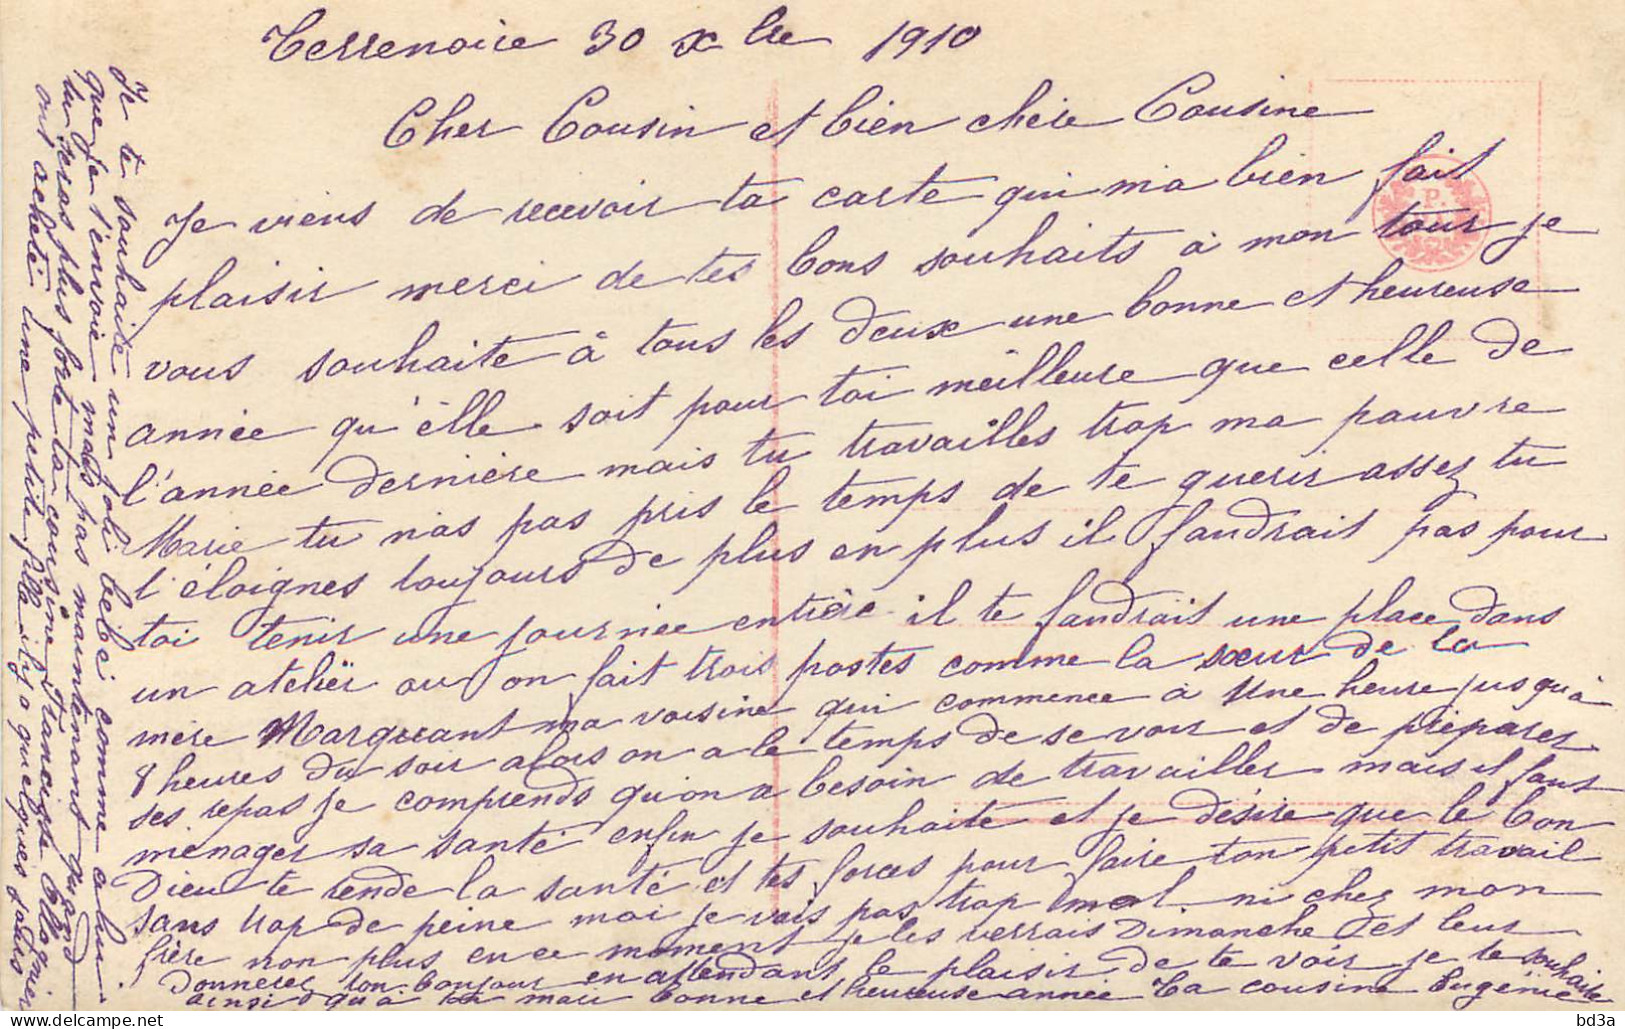 Terrenoire 30 xbre 1910
Cher Cousin et bien chère Cousine
Je viens de recevoir ta carte qui ma bien fait
plaisir merci de tes bons souhaits à mon tour je
vous souhaite à tous les deux une bonne et heureuse
année qu'elle soit pour toi meilleure que celle de
l'année dernière mais tu travailles trop ma pauvre
Marie tu n'as pas pris le temps de te guerir assez tu
l'éloignes toujours de plus en plus il faudrait pas pour
toi tenir une journée entière il te faudrait une place dans
un atelier ou on fait trois postes comme la sœur de la
mère Marquant ma voisine qui commence à Une heure jusqu'à
8 heures du soir alors on a le temps de se voir et de préparer
ses repas je comprends qu'on a besoin de travailler mais il faut
ménager sa santé enfin je souhaite et je désire que le bon
Dieu te rende la santé et tes forces pour faire ton petit travail
sans trop de peine moi je vais pas trop mal ni chez mon
frère non plus en ce moment je les verrais Dimanche et leur
donnerer ton bonjour en attendant le plaisir de te voir je te souhaite
ainsi qu'à ton mari bonne et heureuse année Ta cousine Eugénie
Je te souhaite un joli bébé comme celui
que je t'envoie mais pas maintenant quand
tu seras plus forte ta cousine Francisque
ont acheté une petite fille il y a quelques jours
P.
bd3a
delcampe.net